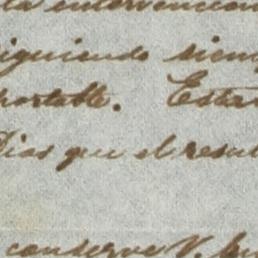 la intervencion
siguiendo siem
portable. Esta
Dios que el resul
conserve V. su